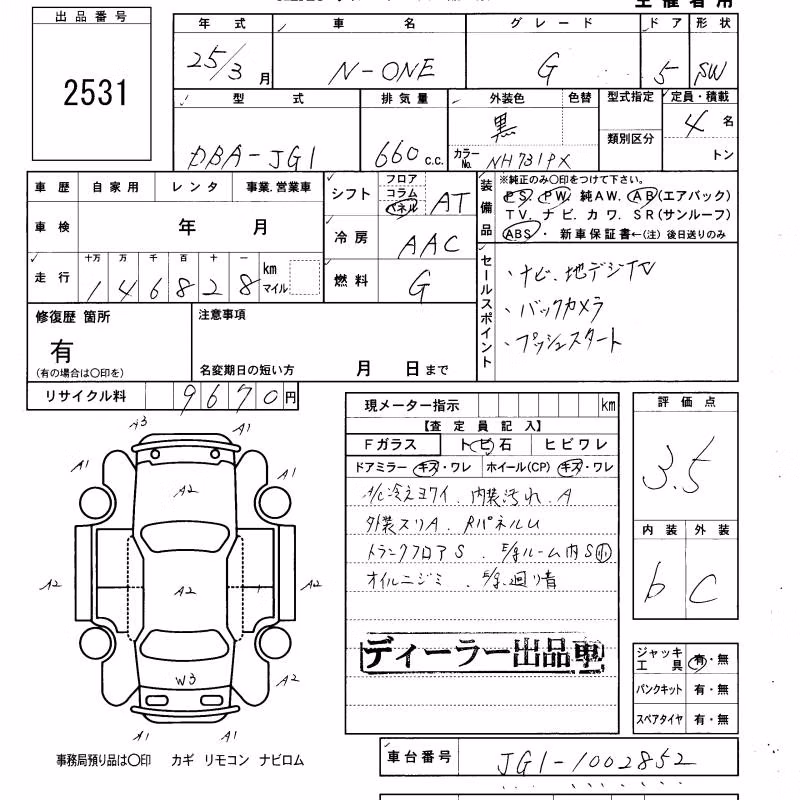 主催者用
出品番号
2531
年式 車名 グレード ドア 形状
25/3月 N-ONE G 5 SW
型式 排気量 外装色 色替 型式指定 定員・積載
DBA-JG1 660 c.c. 黒 類別区分 4名
カラーNo. NH731PX トン
車歴 自家用 レンタ 事業.営業車
車検 年 月
走行 十万 万 千 百 十 一 km マイル
1 4 6 8 2 8
シフト フロア コラム パネル AT
冷房 AAC
燃料 G
装備品
※純正のみ〇印をつけて下さい。
PS. PW. 純AW. AB(エアバック)
TV. ナビ. カワ. SR(サンルーフ)
ABS・ 新車保証書←(注)後日送りのみ
セールスポイント
・ナビ、地デジTV
・バックカメラ
・プッシュスタート
修復歴 箇所
有
(有の場合は〇印を)
注意事項
名変期日の短い方 月 日まで
リサイクル料 9670円
現メーター指示 km
【査定員記入】
Fガラス トビ石 ヒビワレ
ドアミラー キズ・ワレ ホイール(CP) キズ・ワレ
A/C冷えヨワイ. 内装汚れ. A
外装スリA. RパネルU
トランクフロアS. E/gルーム内S小
オイルニジミ. E/g廻り音
ディーラー出品車
評価点
3.5
内装 外装
b C
ジャッキ工具 有・無
パンクキット 有・無
スペアタイヤ 有・無
A3 A1
A1 A2 A1
A2 A2 1 A2
A1 W3 A2
A1 A1
事務局預り品は〇印 カギ リモコン ナビロム
車台番号 JG1-1002852